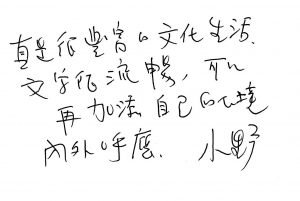 真是很豐富的文化生活.
文字很流暢, 可以
再加添自己的心境
內外呼應. 小野